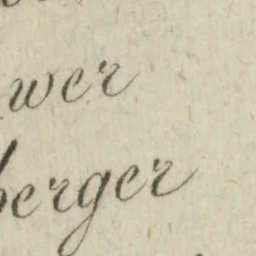 wer
berger